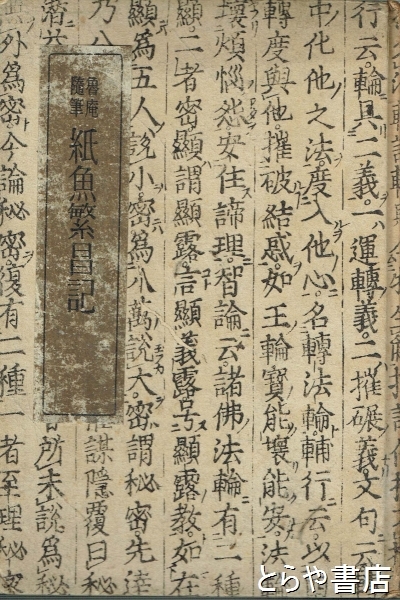 行云。輪具二義。一運轉義。二摧碾義。文句云
中化他之法度入他心。名轉法輪輔行云。以
轉度與他。摧破結惑。如王輪寶能壞能安。法
壞煩惱怨安住諦理。智論云諸佛法輪有二種
顯。二者密。顯謂顯露言顯義露。号顯露教。如在
顯爲五人說小。密爲八萬說大。密謂秘密。先達
乃八
謀隱覆曰秘
魯庵
隨筆
紙魚繁昌記
所未說爲秘
外爲密。今論秘密復有二種一者至理秘密
とらや書店